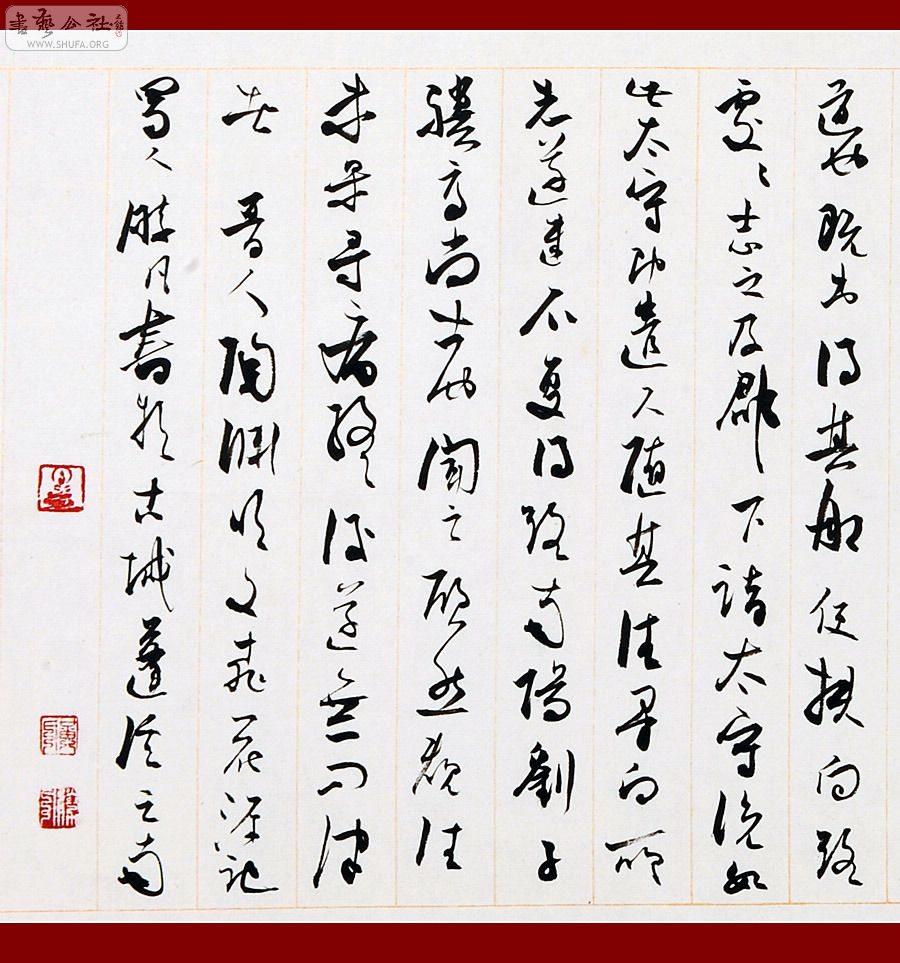 書藝公社
WWW.SHUFA.ORG
道也既出得其船便扶向路
處々志之及郡下詣太守說如
此太守即遣人隨其往尋向所
志遂迷不复得路南陽劉子
驥高尚士也聞之欣然規往
未果尋病終後遂無問津
者 晉人陶淵明文桃花源記
蜀人書於古城之南